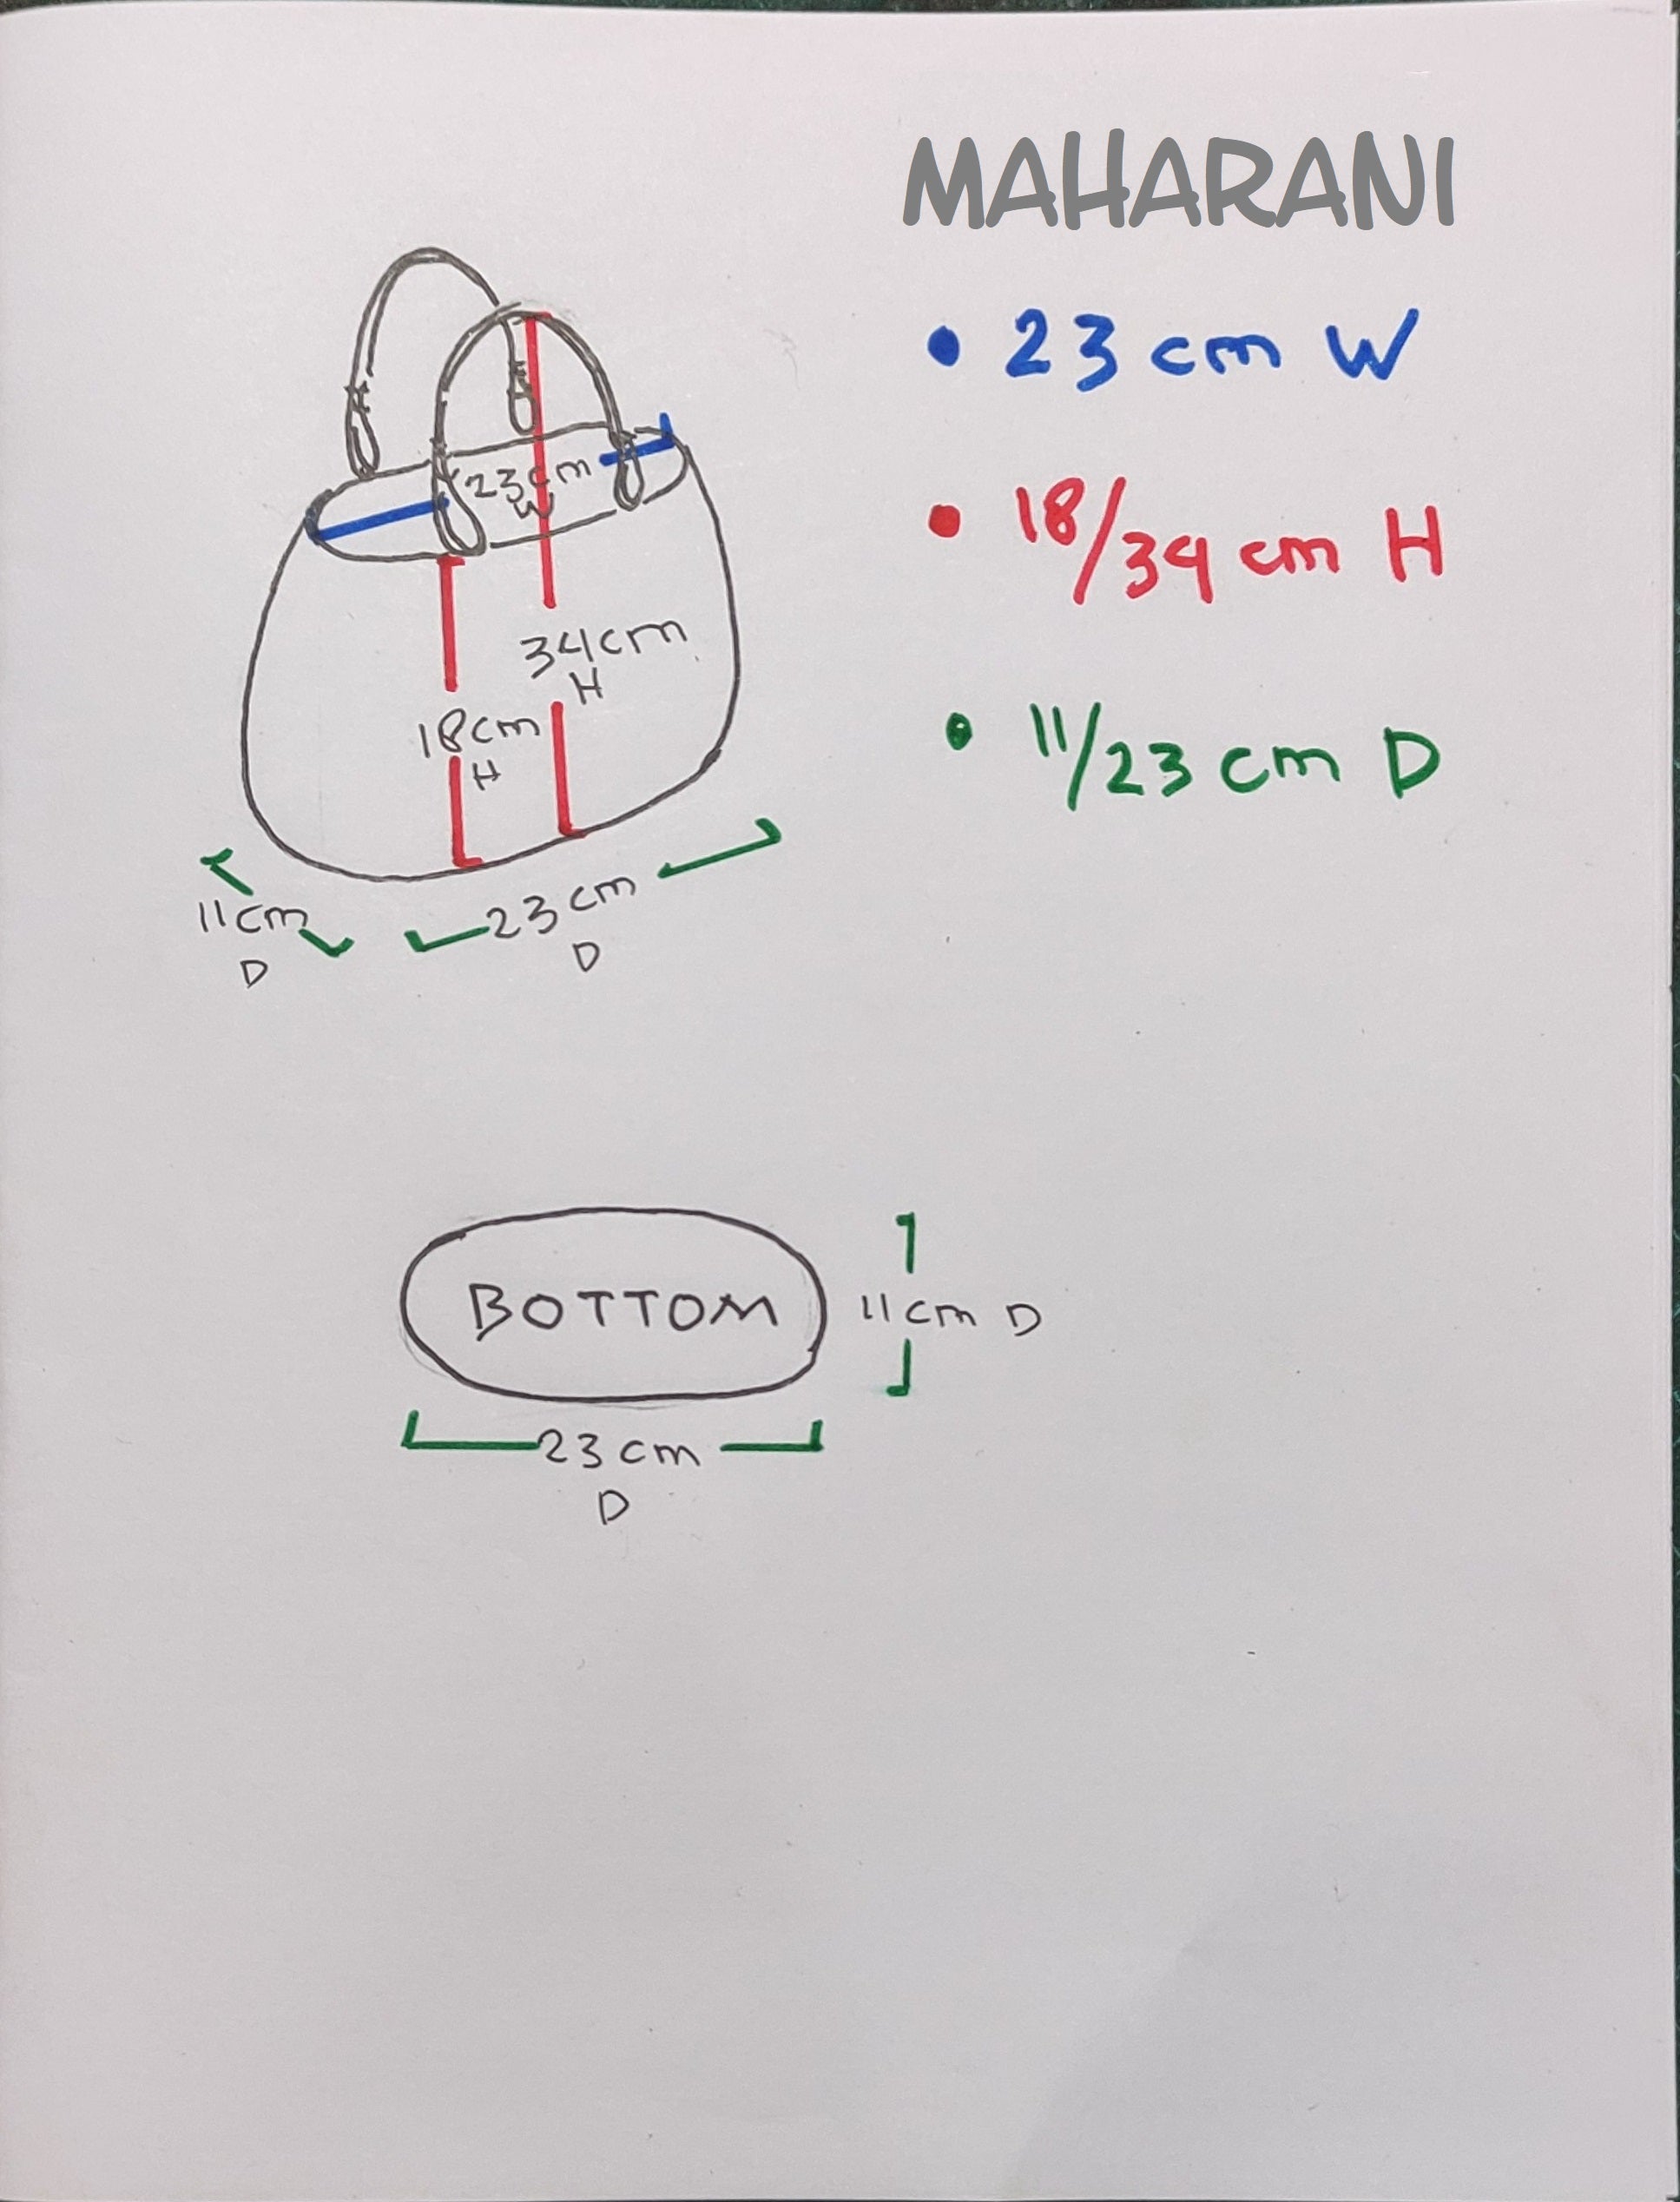 MAHARANI
• 23 cm W
• 18/34 cm H
• 11/23 cm D
23cm
W
34cm
H
18cm
H
11cm
D
23 cm
D
BOTTOM
11cm D
23 cm
D